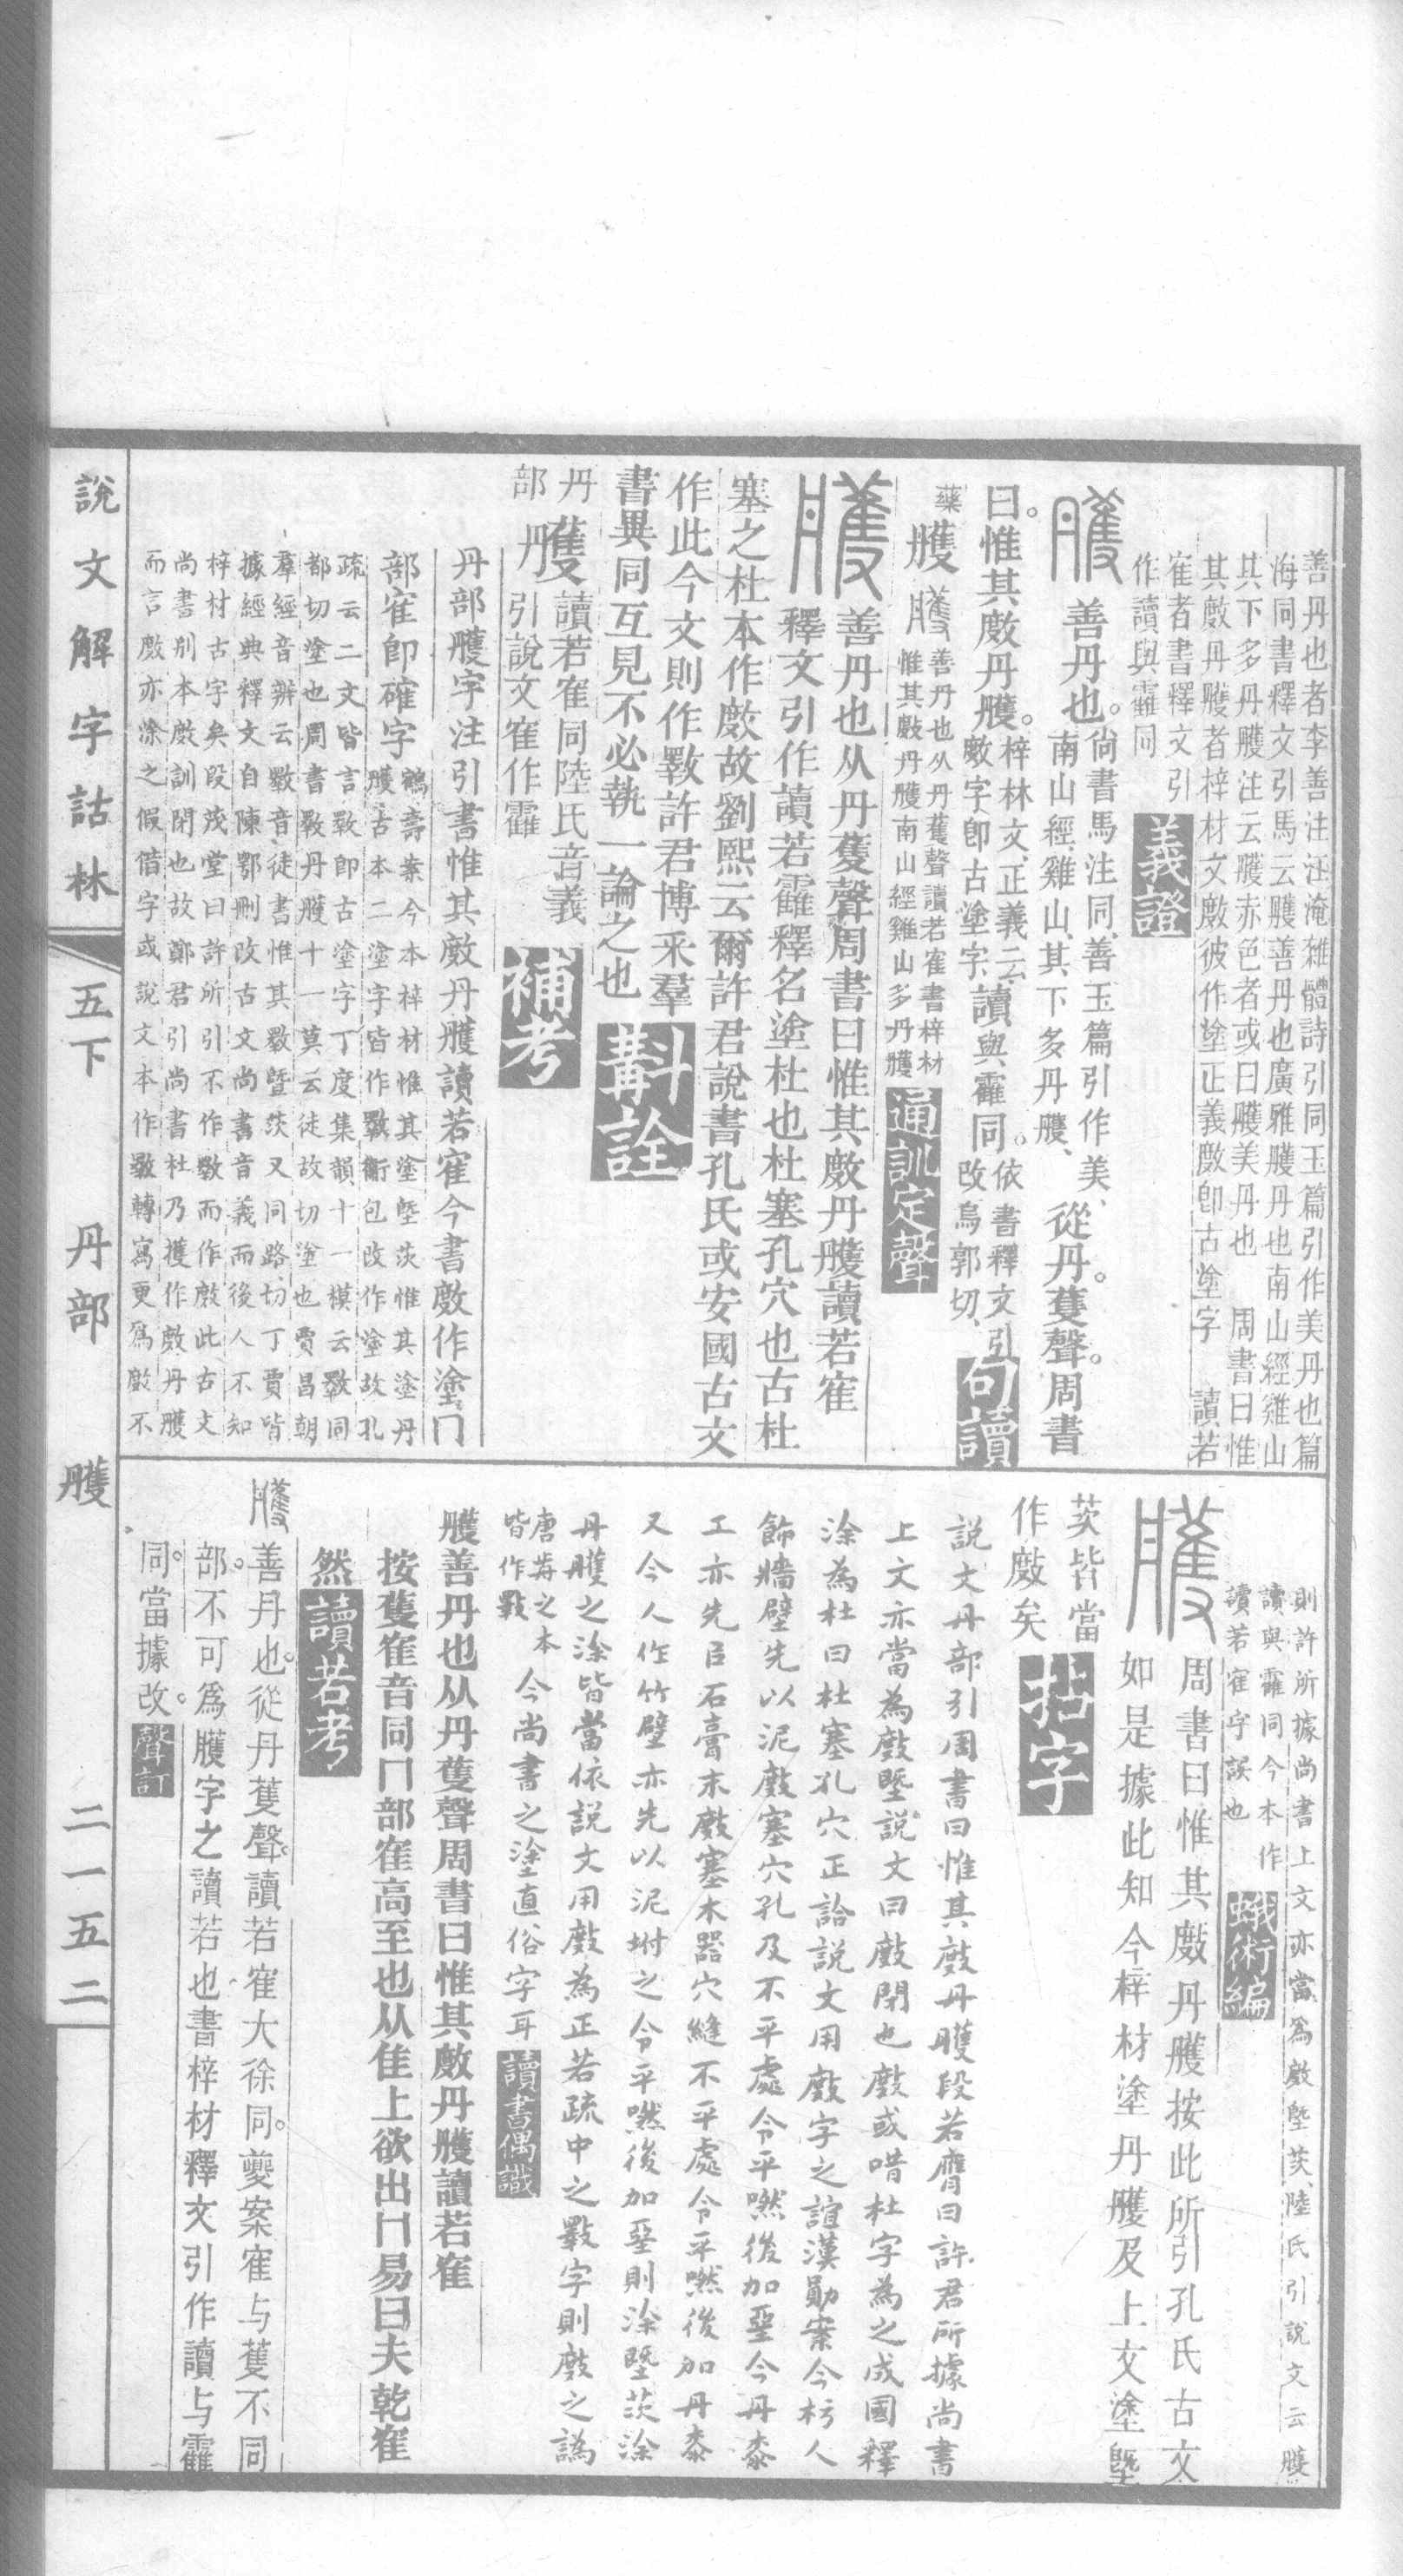 善丹也者李善注江淹雜體詩引同玉篇引作美丹也篇
海同書釋文引馬云雘善丹也廣雅雘丹也南山經雞山
其下多丹雘注云雘赤色者或曰雘美丹也 周書曰惟
其㪑丹雘者梓材文㪑彼作塗正義㪑卽古塗字 讀若
隺者書釋文引
作讀與靃同
義證
雘
善丹也。尙書馬注同、善玉篇引作美、南山經、雞山、其下多丹雘、從丹。蒦聲。周書
曰。惟其㪑丹雘。梓林文、正義云、㪑字卽古塗字、讀與靃同。依書釋文引改、烏郭切、
句讀
雘
雘善丹也从丹蒦聲讀若隺書梓材
惟其㪑丹雘南山經雞山多丹雘
通訓定聲
雘
善丹也从丹蒦聲周書曰惟其㪑丹雘讀若隺
釋文引作讀若靃釋名塗杜也杜塞孔穴也古杜
塞之杜本作㪑故劉熙云爾許君說書孔氏或安國古文
作此今文則作斁許君博采羣
書異同互見不必執一論之也
斠詮
丹部
雘
讀若隺同陸氏音義
引說文隺作靃
補考
丹部雘字注引書惟其㪑丹雘讀若隺今書㪑作塗冂
部隺卽確字
鶴壽案今本梓材惟其塗塈茨惟其塗丹
雘古本二塗字皆作斁衞包改作塗故孔
疏云二文皆言斁卽古塗字丁度集韻十一模云斁同
都切塗也周書斁丹雘十一莫云徒故切塗也賈昌朝
羣經音辨云斁音徒書惟其斁塈茨又同路切丁賈皆
據經典釋文自陳鄂刪改古文尚書音義而後人不知
梓材古字矣段茂堂曰許所引不作斁而作㪑此古文
尚書別本㪑訓閉也故鄭君引尚書杜乃擭作㪑丹雘
而言㪑亦涂之假借字或說文本作斁轉寫更爲㪑不
則許所據尚書上文亦當爲㪑塈茨、陸氏引說文云雘
讀與靃同今本作
讀若隺字誤也
蛾術編
雘
周書曰惟其㪑丹雘按此所引孔氏古文
如是據此知今梓材塗丹雘及上文塗塈
茨皆當
作㪑矣
拈字
說文丹部引周書曰惟其㪑丹雘段若膺曰許君所據尚書
上文亦當為㪑塈說文曰㪑閉也㪑或咁杜字為之成國釋
涂為杜曰杜塞孔穴正詥說文用㪑字之誼漢勛案今杇人
飾牆壁先以泥㪑塞穴孔及不平處令平嘫後加堊今丹桼
工亦先㠯石膏末㪑塞木器穴縫不平處令平嘫後加丹桼
又今人作竹壁亦先以泥坿之令平嘫後加堊則涂塈茨涂
丹雘之涂皆當依說文用㪑為正若疏中之斁字則㪑之譌
唐茻之本
皆作斁
今尚書之塗直俗字耳
讀書偶識
雘善丹也从丹蒦聲周書曰惟其㪑丹雘讀若隺
按蒦隺音同冂部隺高至也从隹上欲出冂易曰夫乾隺
然
讀若考
雘
善丹也。從丹蒦聲。讀若隺大徐同。夔案隺与蒦不同
部。不可爲雘字之讀若也書梓材釋文引作讀与靃
同。當據改。
聲訂
說文解字詁林
五下
丹部
雘
二一五二